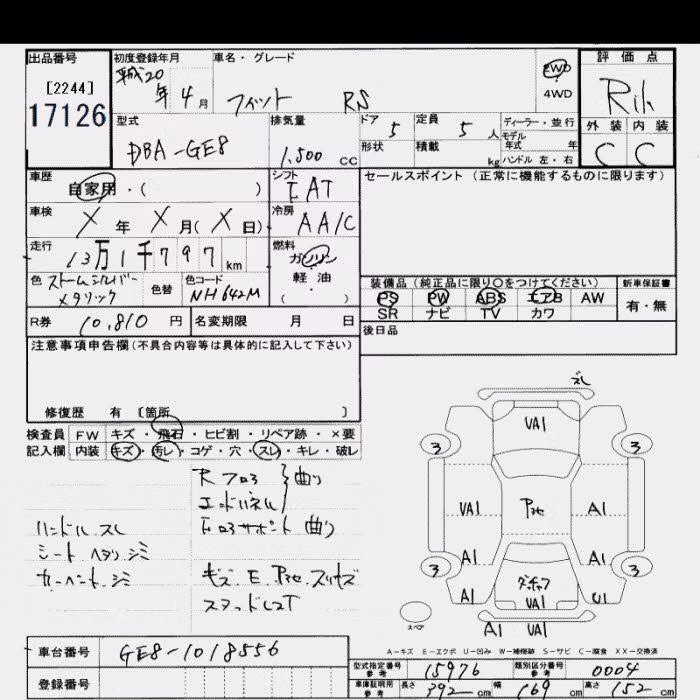 出品番号 初度登録年月 車名・グレード 2WD 4WD 評価点
[2244] 平成20年4月 フィット RS
17126
型式 排気量 ドア 5 定員 5人 ディーラー・並行 外装 内装
DBA-GE8 1,500cc 形状 積載 kg モデル年式 年 C C
ハンドル 左・右
車歴 シフト セールスポイント(正常に機能するものに限ります)
自家用・( ) AT
車検 X年X月(X日) 冷房 AA/C
走行 13万1千797km 燃料 ガソリン
軽・油
( )
色 ストームシルバーメタリック 色替 色コード NH642M
装備品(純正品に限り○をつけてください) 新車保証書
PS PW ABS エアB AW 有・無
SR ナビ TV カワ
R券 10,810円 名変期限 月 日 後日品
注意事項申告欄(不具合内容等は具体的に記入して下さい)
修復歴 有 [箇所 ]
検査員 FW キズ・飛石・ヒビ割・リペア跡・×要
記入欄 内装 キズ・汚レ・コゲ・穴・スレ・キレ・破レ
Rフロア 曲り
エンドパネル
曲り
ハンドル スレ
シート ヘタリ シミ
カーペット シミ
VA1
3 3
VA1 A1
A1 A1
3 3
A1 VA1 U1
スペア
A1 VA1
A-キズ E-エクボ U-凹み W-補修跡 S-サビ C-腐食 XX-交換済
車台番号 GE8-1018556
登録番号
型式指定番号 参考 15976 類別区分番号 参考 0004
車庫証明用 参考 長さ 392cm 幅 169cm 高さ 152cm